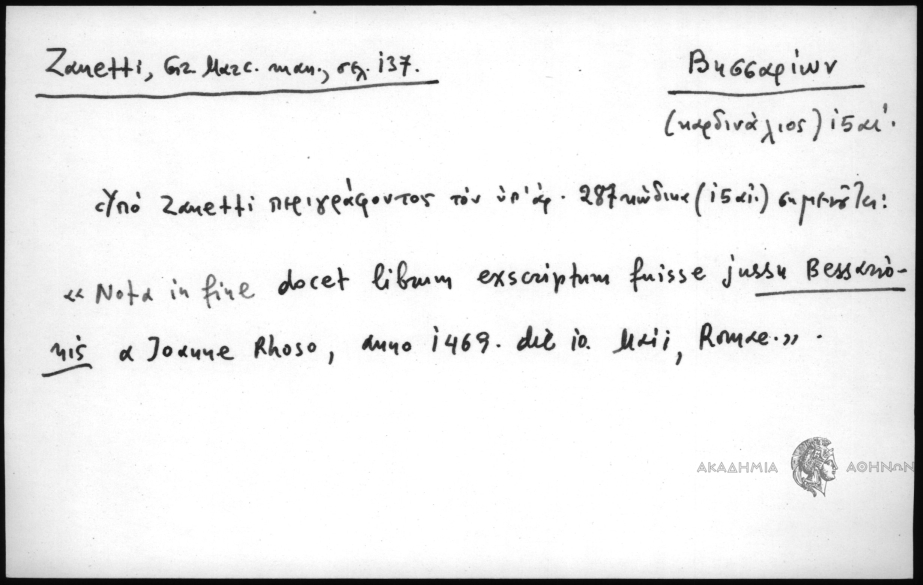 Zanetti, Gr. Marc. man., σελ. 137.
Βησσαρίων
(καρδινάλιος) 15 αι.
Ὑπό Zanetti περιγράφοντος τόν ὑπ' ἀρ. 287 κώδικα (15 αι.) σημειοῦται:
« Nota in fine docet librum exscriptum fuisse jussu Bessario-
nis a Joanne Rhoso, anno 1469. die 10. Maii, Romae.» .
ΑΚΑΔΗΜΙΑ ΑΘΗΝΩΝ